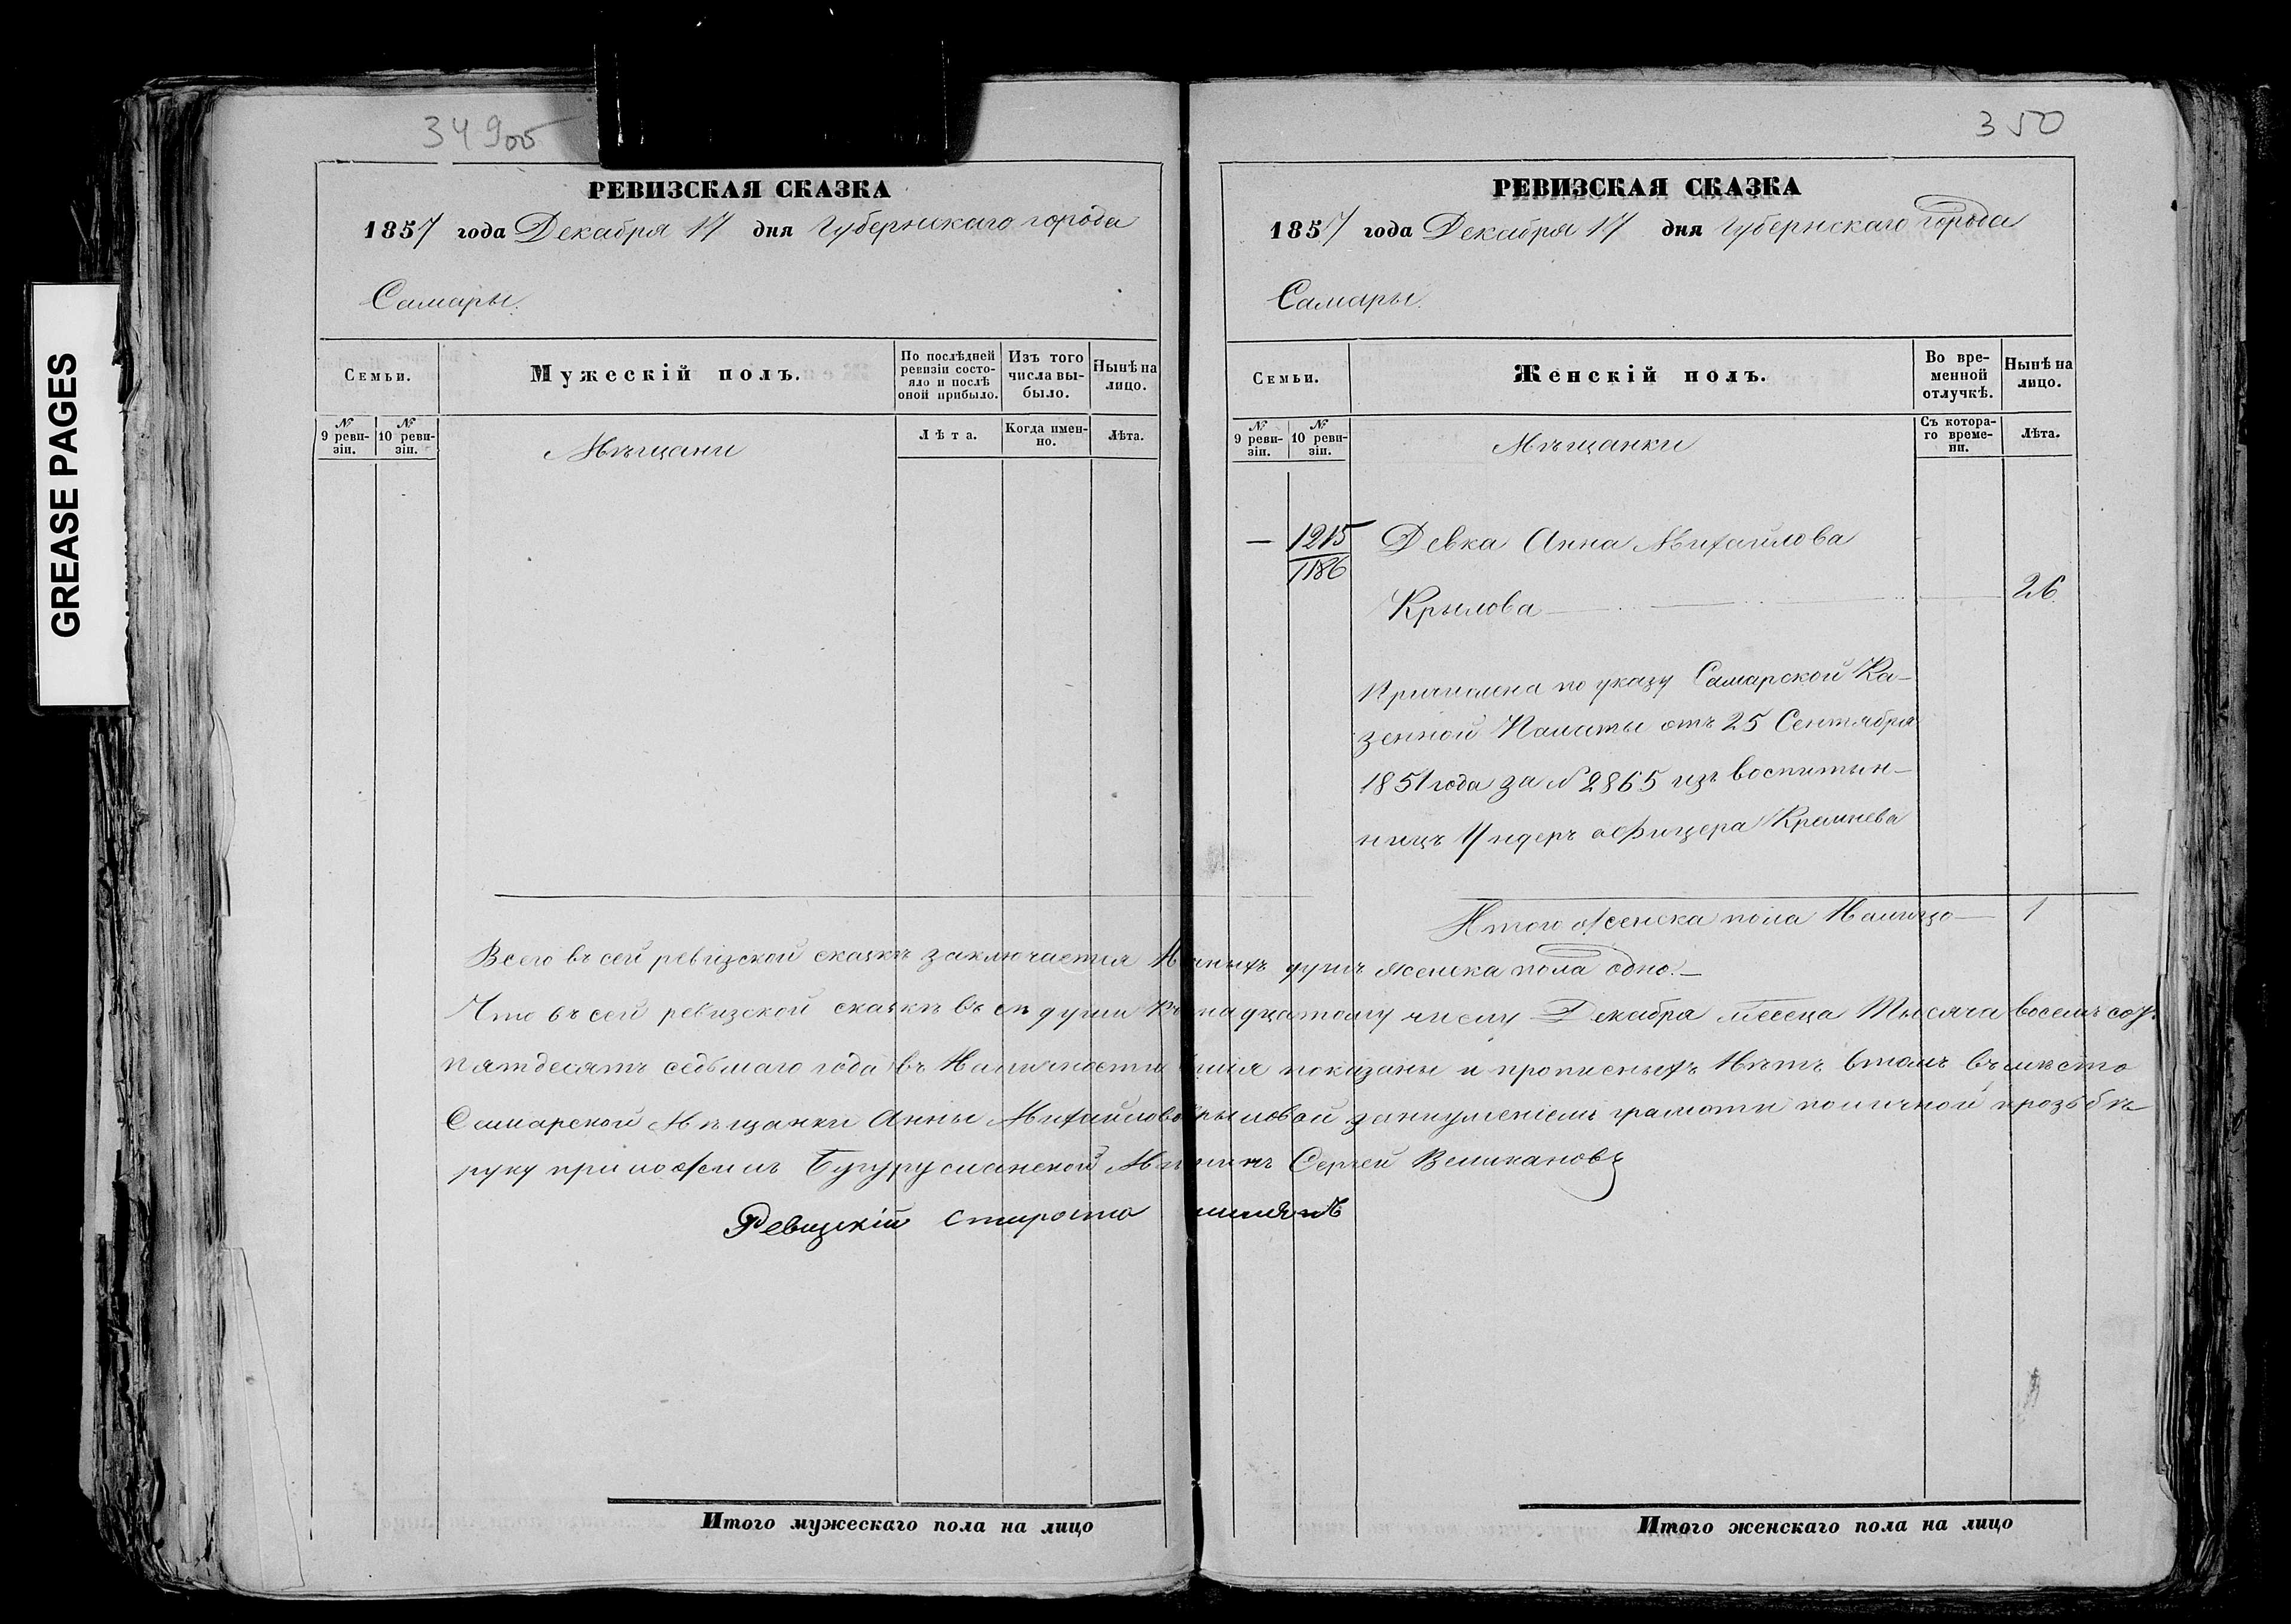 34905
РЕВИЗСКАЯ СКАЗКА
1857 года Декабря 17 дня Губернскаго города
Самары.
Семьи.
Мужескій полъ.
По послѣдней ревизіи состояло и послѣ оной прибыло.
Изъ того числа выбыло.
Нынѣ на лицо.
№ 9 ревизіи.
№ 10 ревизіи.
Мѣщани
Лѣта.
Когда именно.
Лѣта.
350
РЕВИЗСКАЯ СКАЗКА
1857 года Декабря 17 дня Губернскаго города
Самары.
Семьи.
Женскій полъ.
Во временной отлучкѣ.
Нынѣ на лицо.
№ 9 ревизіи.
№ 10 ревизіи.
Мѣщанки
Съ котораго времени.
Лѣта.
— 1215 Девка Анна Михайлова
1186
Крылова — 26
Причислена по указу Самарской Ка-
зенной Палаты отъ 25 Сентября
1851 года за № 2865 изъ воспитын-
ницъ Ундеръ офицера Кремнева
Итого Женска пола Налицо — 1
Всего въ сей ревизской сказкѣ заключается душъ женска пола одно.—
Что въ сей ревизской сказкѣ всѣ души Декабря месеца Тысяча восемъ сот
пятдесятъ седьмаго года въ Наличности показаны и прописныхъ Нѣтъ втомъ въместо
Самарской Мѣщанки Анны Михайлово рыловой занеуменіемъ грамоти поличной прозьбѣ
руку приложилъ Бугурусланской Сергей Великановъ
Ревизкій староста
Итого мужескаго пола на лицо
Итого женскаго пола на лицо
GREASE PAGES